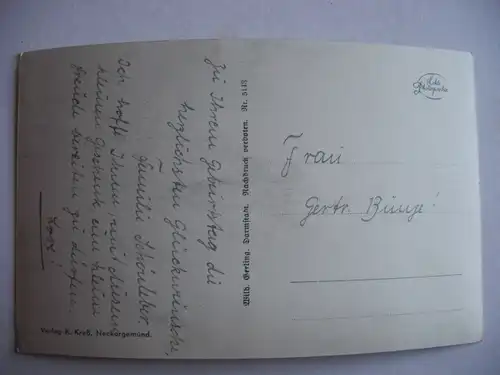 Zu Ihrem Geburtstag die
herzlichsten Glückwünsche,
Familie Schönleber.
Ich hoffe Ihnen, mit diesem
kleinen Geschenk eine kleine
Freude bereiten zu dürfen.
Wilh. Gerling, Darmstadt. Nachdruck verboten. Nr. 5143
Echte
Photographie
Frau
Gertr. Bunje!
Verlag E. Kreß, Neckargemünd.